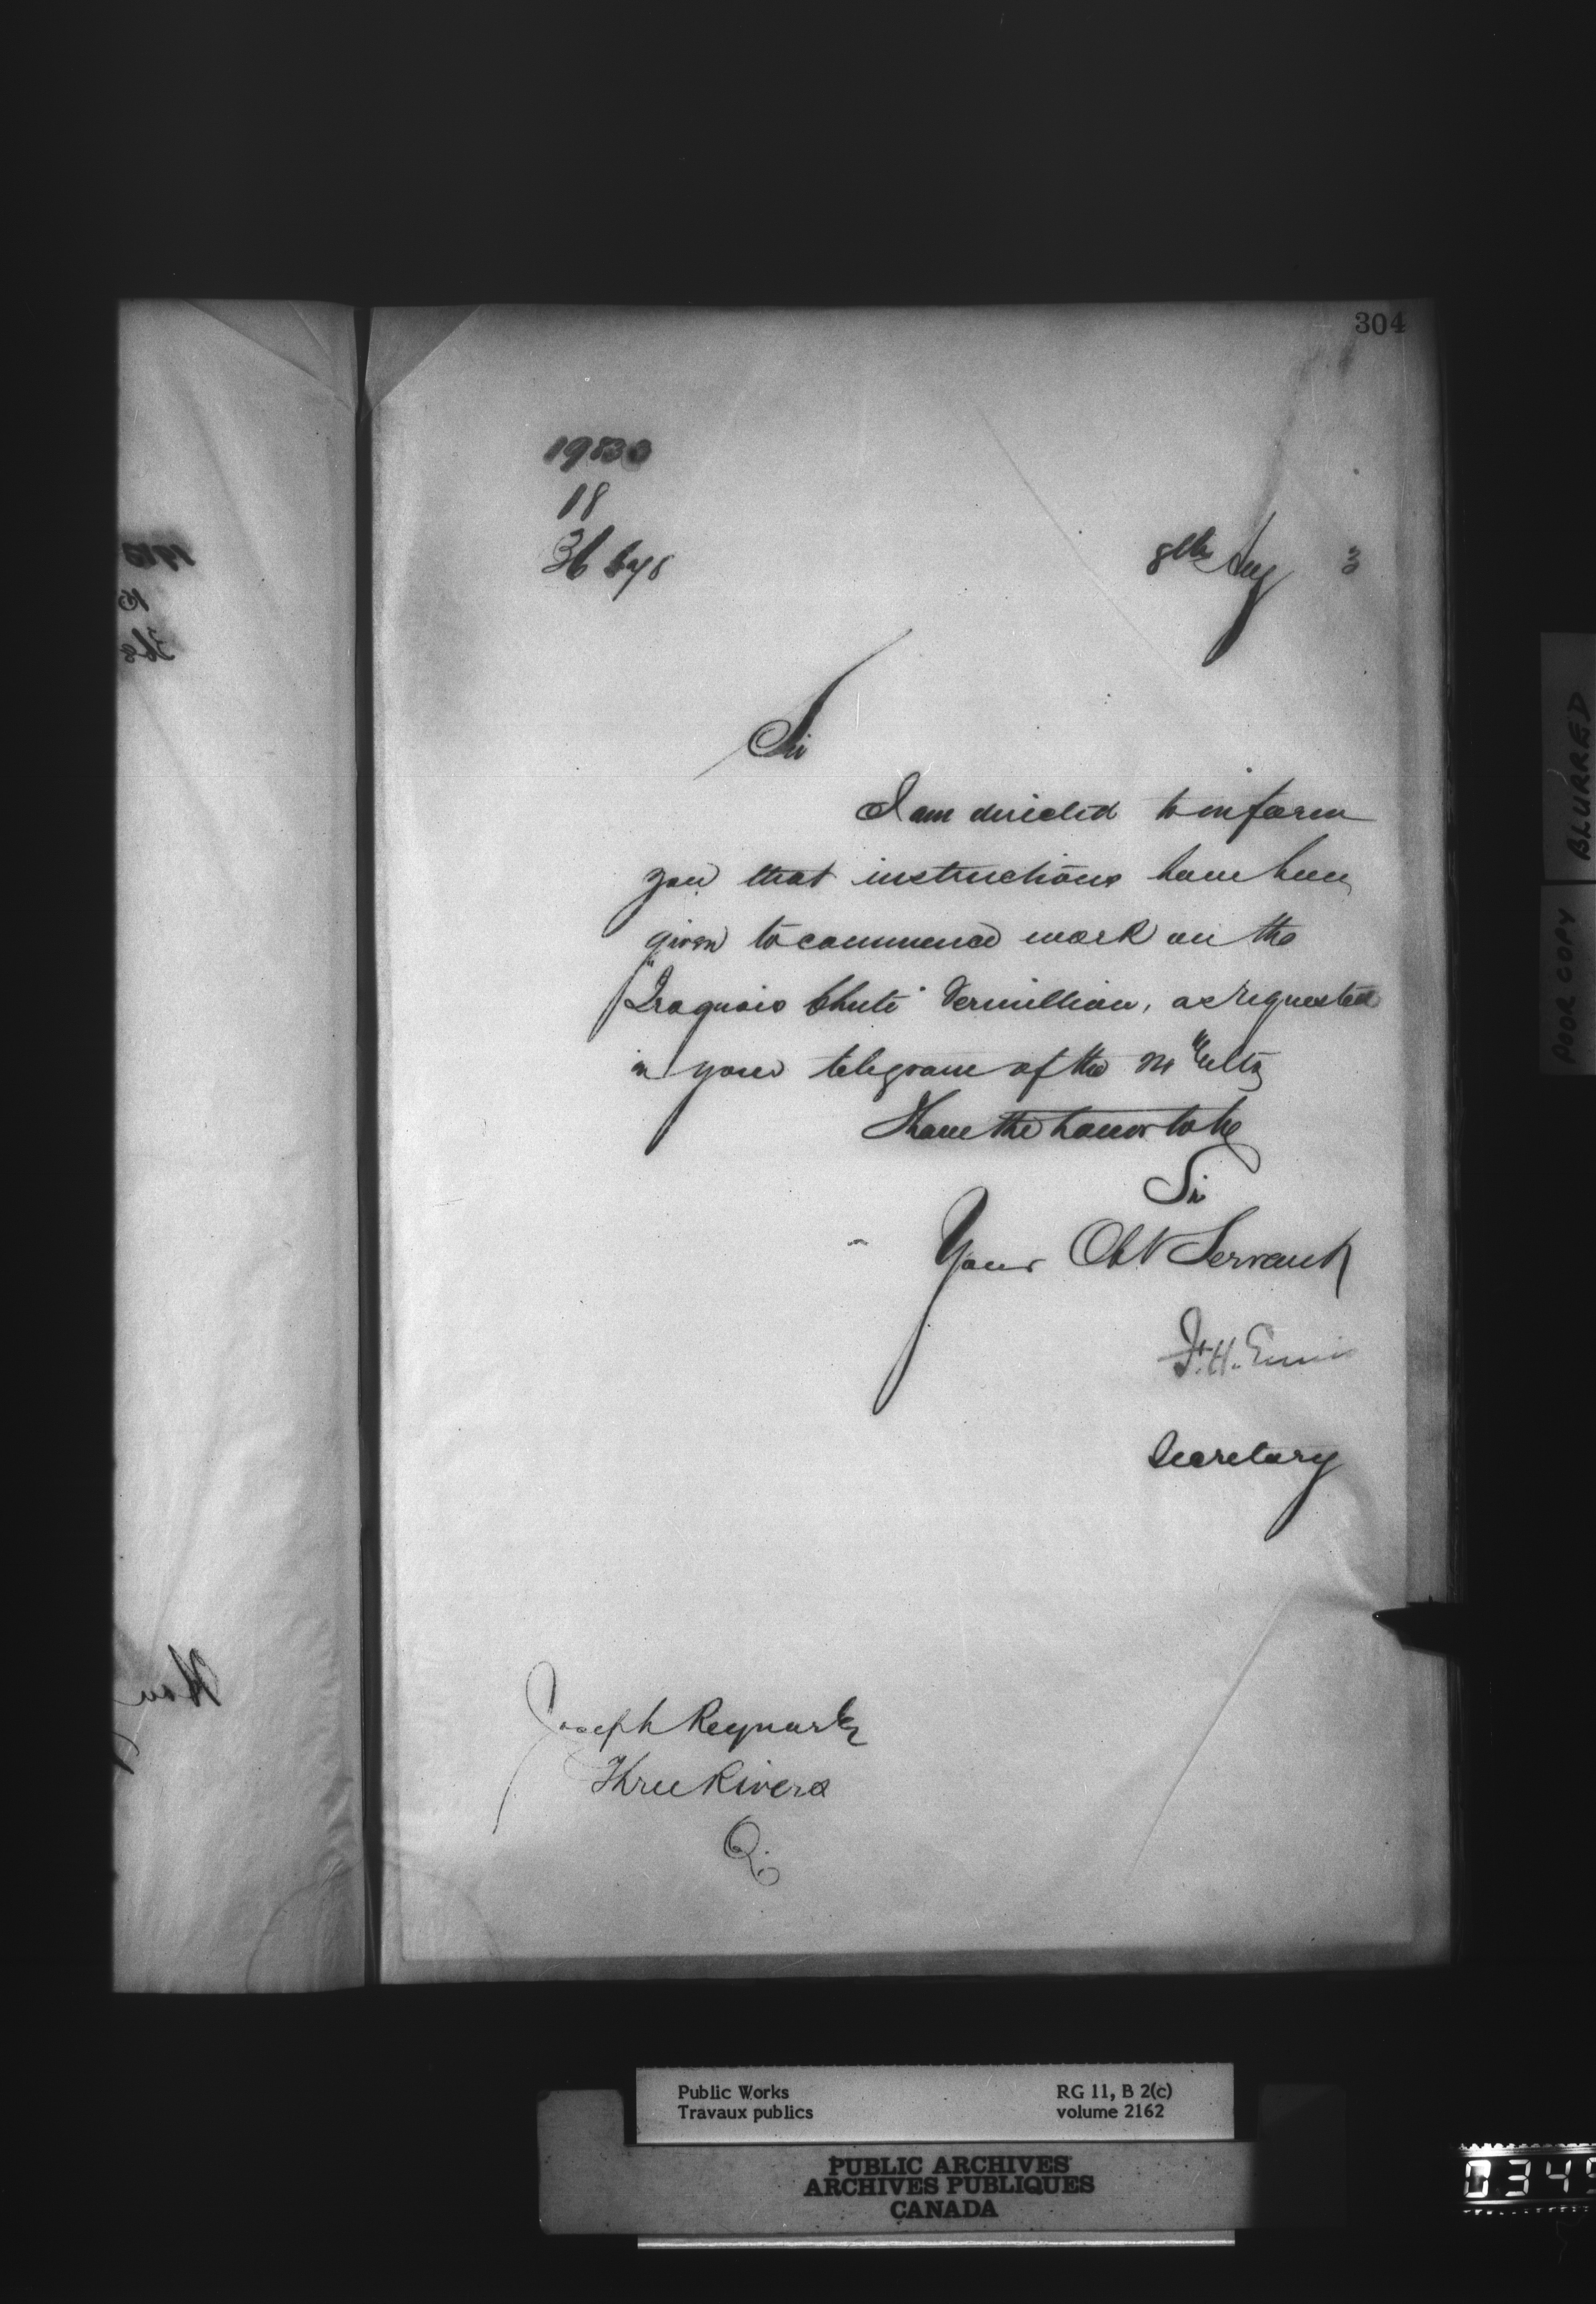 304
19830
18
8th Aug 3
Sir
I am directed to inform
you that instructions have been
given to commence work on the
"Iroquois Chute" Vermillion, as requested
in your telegram of the
I have the honor to be
Sir
Your Obt Servant
F. H. Ennis
Secretary
Joseph Reynar
Three Rivers
Q.
POOR COPY BLURRED
Public Works
Travaux publics
RG 11, B 2(c)
volume 2162
PUBLIC ARCHIVES
ARCHIVES PUBLIQUES
CANADA